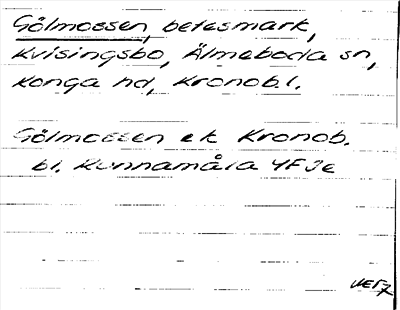 Gölmossen, betesmark,
Kvisingsbo, Älmeboda sn,
Konga hd, Kronob.l.
Gölmossen ek Kronob.
bl. Kunnamåla 4F Je